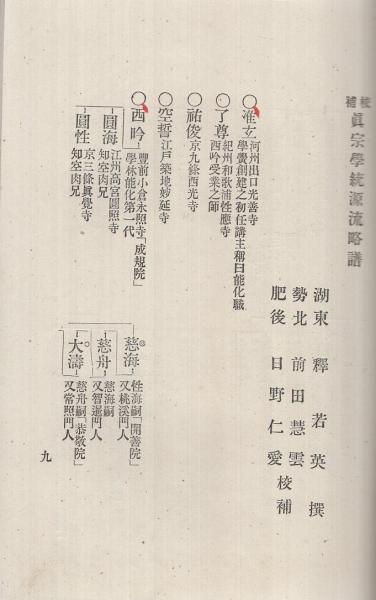 校補 眞宗學統源流略譜
湖東 釋若英 撰
勢北 前田慧雲
肥後 日野仁愛 校補
〇准玄 河州出口光善寺
學黌創建之初任講主稱曰能化職
〇了尊 紀州和歌浦性應寺
西吟受業之師
〇祐俊 京九條西光寺
〇空誓 江戸築地妙延寺
〇西吟 豐前小倉永照寺「成規院」
學林能化第一代
圓海 江州高宮圓照寺
知空肉兄
圓性 京三條眞覺寺
知空肉兄
慈海 性海嗣「開善院」
又桃溪門人
慈舟 慈海嗣
又智暹門人
大濤 慈舟嗣「恭敬院」
又常照門人
九